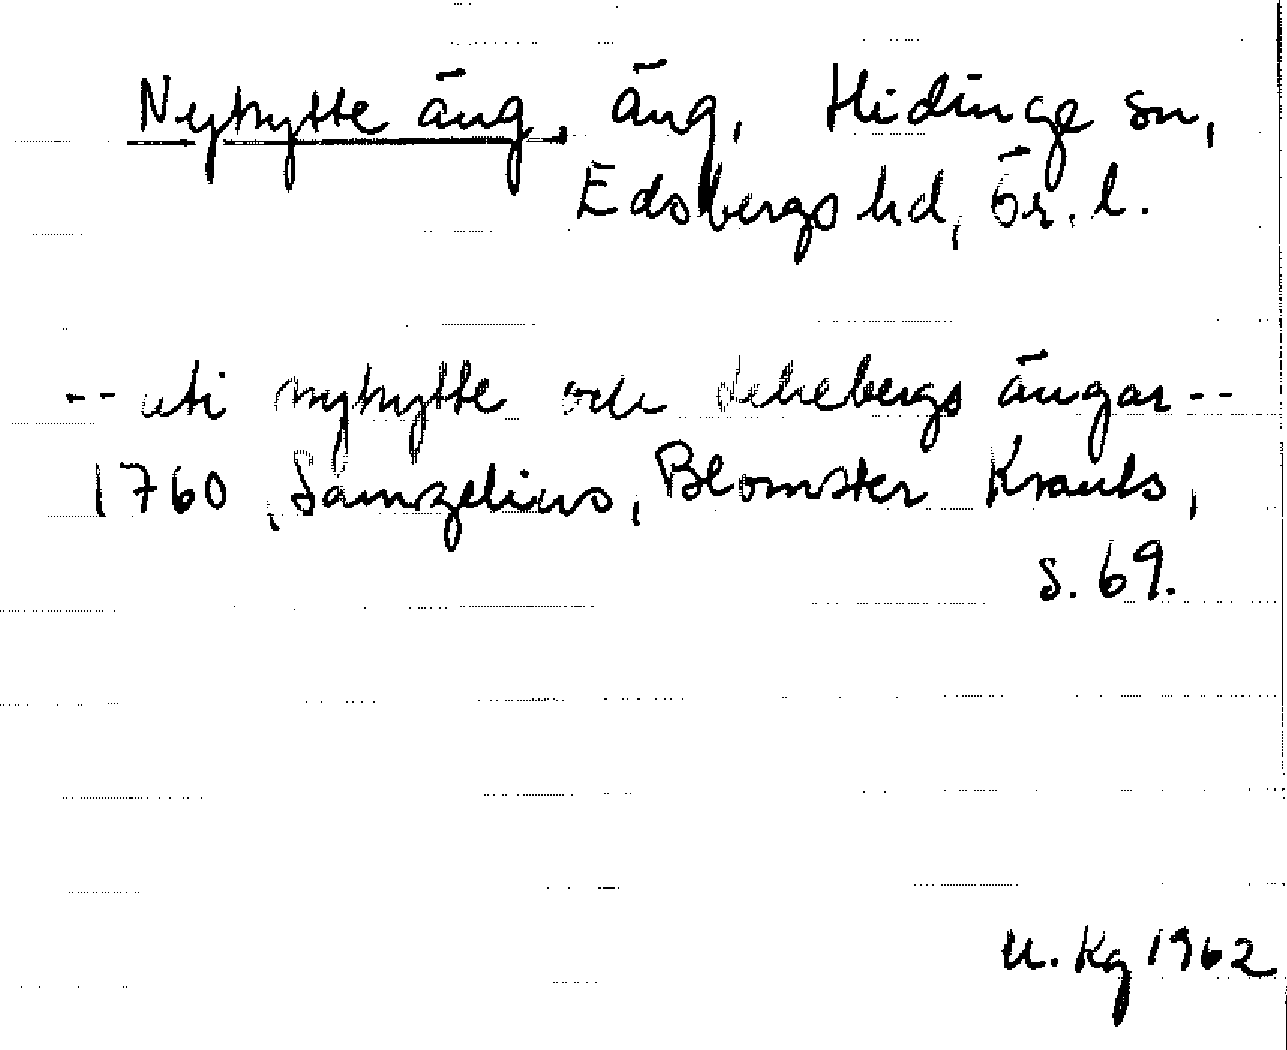 Nyhytte äng, äng, Hidinge sn,
Edsbergs hd, Ör. l.
-- uti nyhytte och Lekebergs ängar --
1760, Samzelius, Blomster Krants,
s. 69.
U. Kg 1962